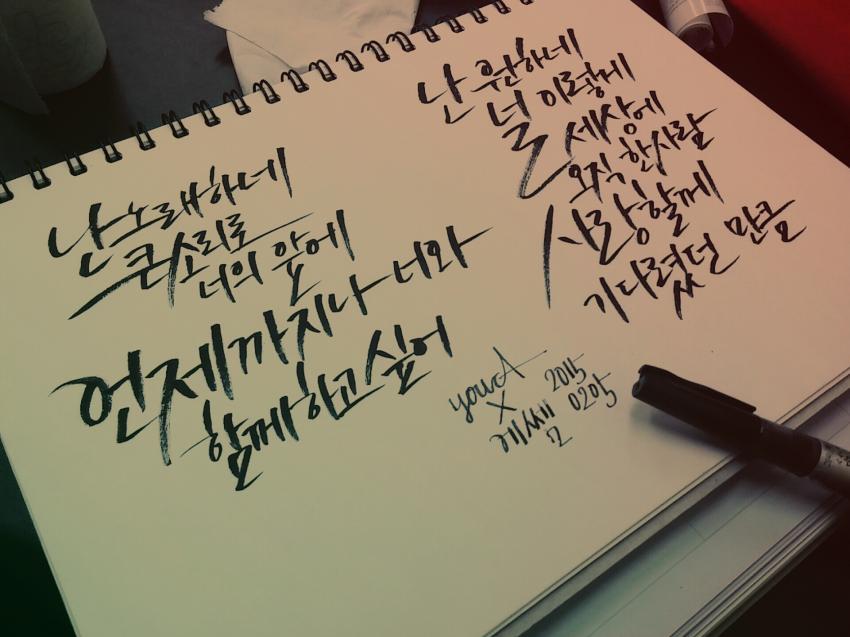 난 노래하네
큰소리로
너의 앞에
언제까지나 너와
함께하고싶어
난 원하네
널 이렇게
세상에
오직 한사람
사랑할게
기다렸던 만큼
your A
X
에쎌
2015
0205